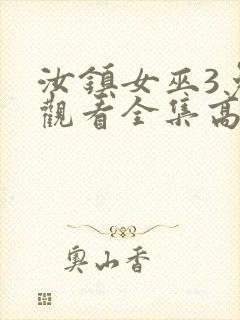 汝鎮女巫3
觀看全集高
奧山香